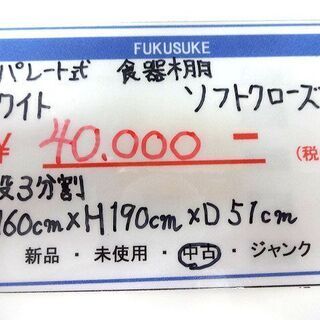 FUKUSUKE
パレート式 食器棚
ワイト ソフトクローズ
¥40.000ー (税
段3分割
160cm×H190cm×D51cm
新品・未使用・中古・ジャンク